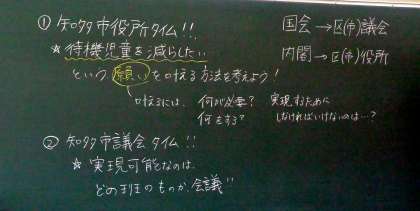 ① 知多市役所タイム!!
☆待機児童を減らしたい
という願いを叶える方法を考えよう!
叶えるには、何が必要? 実現するために
何をする? しなければいけないのは…?
② 知多市議会タイム!!
☆実現可能なのは、
どの班のものか会議!!
国会→区(市)議会
内閣→区(市)役所